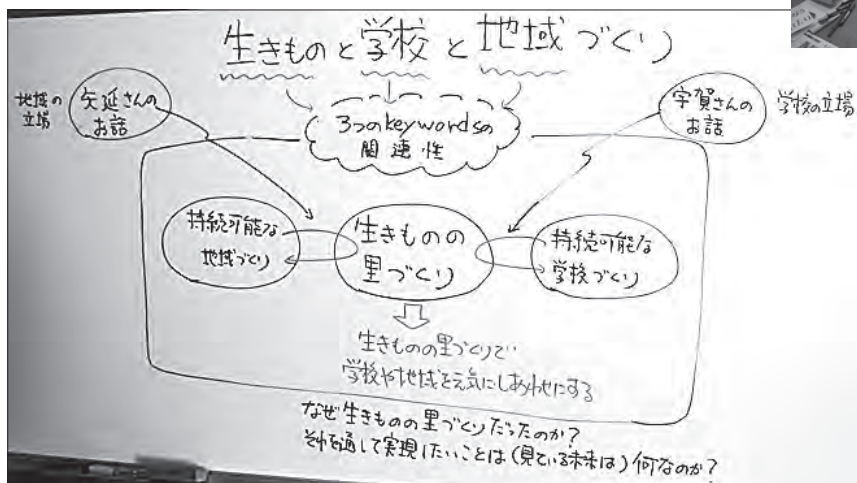 生きものと学校と地域づくり
3つのkeywordsの
関連性
地域の
立場
矢延さんの
お話
宇賀さんの
お話
学校の立場
持続可能な
地域づくり
生きものの
里づくり
持続可能な
学校づくり
生きものの里づくりで
学校や地域を元気にしあわせにする
なぜ生きものの里づくりだったのか?
それを通して実現したいことは(見ている未来は)何なのか?